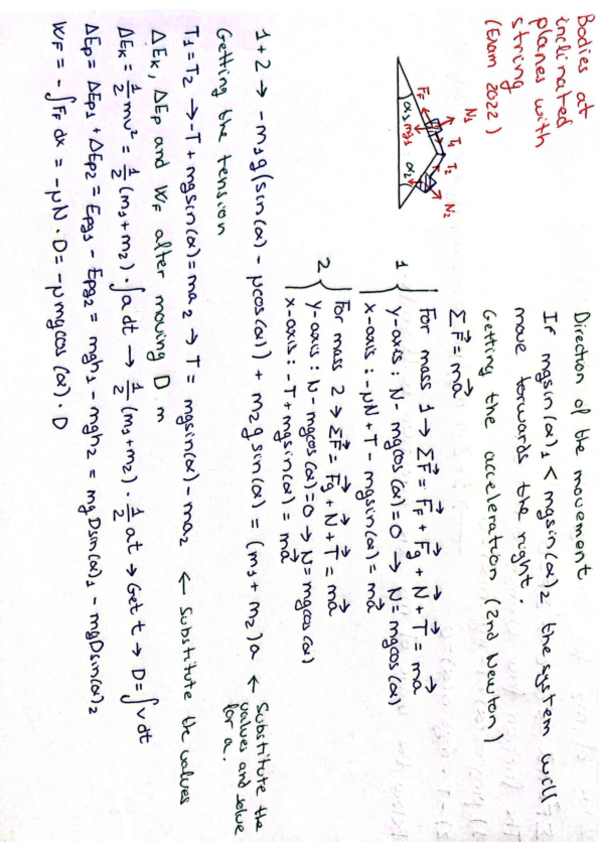 Bodies at
inclinated
planes with
string
(Exam 2022)
N1
T1
T2
N2
FF
α1
mg1
α2
Direction of the movement
If mgsin(α)1 < mgsin(α)2 the system will
move forwards the right.
Getting the acceleration (2nd Newton)
ΣF⃗ = ma⃗
1 { For mass 1 → ΣF⃗ = F⃗F + F⃗g + N⃗ + T⃗ = ma⃗
y-axis: N - mgcos(α) = 0 → N = mgcos(α)
x-axis: -μN + T - mgsin(α) = ma⃗
2 { For mass 2 → ΣF⃗ = F⃗g + N⃗ + T⃗ = ma⃗
y-axis: N - mgcos(α) = 0 → N = mgcos(α)
x-axis: -T + mgsin(α) = ma⃗
1+2 → -m1g(sin(α) - μcos(α)) + m2gsin(α) = (m1 + m2)a ← Substitute the
values and solve
for a.
Getting the tension
T1 = T2 → -T + mgsin(α) = ma2 → T = mgsin(α) - ma2 ← Substitute the values
ΔEK, ΔEp and WF after moving D m
ΔEK = 1/2 mv² = 1/2 (m1 + m2) · ∫a dt → 1/2 (m1 + m2) · 1/2 at → Get t → D = ∫v dt
ΔEp = ΔEp1 + ΔEp2 = Epg1 - Epg2 = mgh1 - mgh2 = mgDsin(α)1 - mgDsin(α)2
WF = -∫FF dx = -μN · D = -μmgcos(α) · D